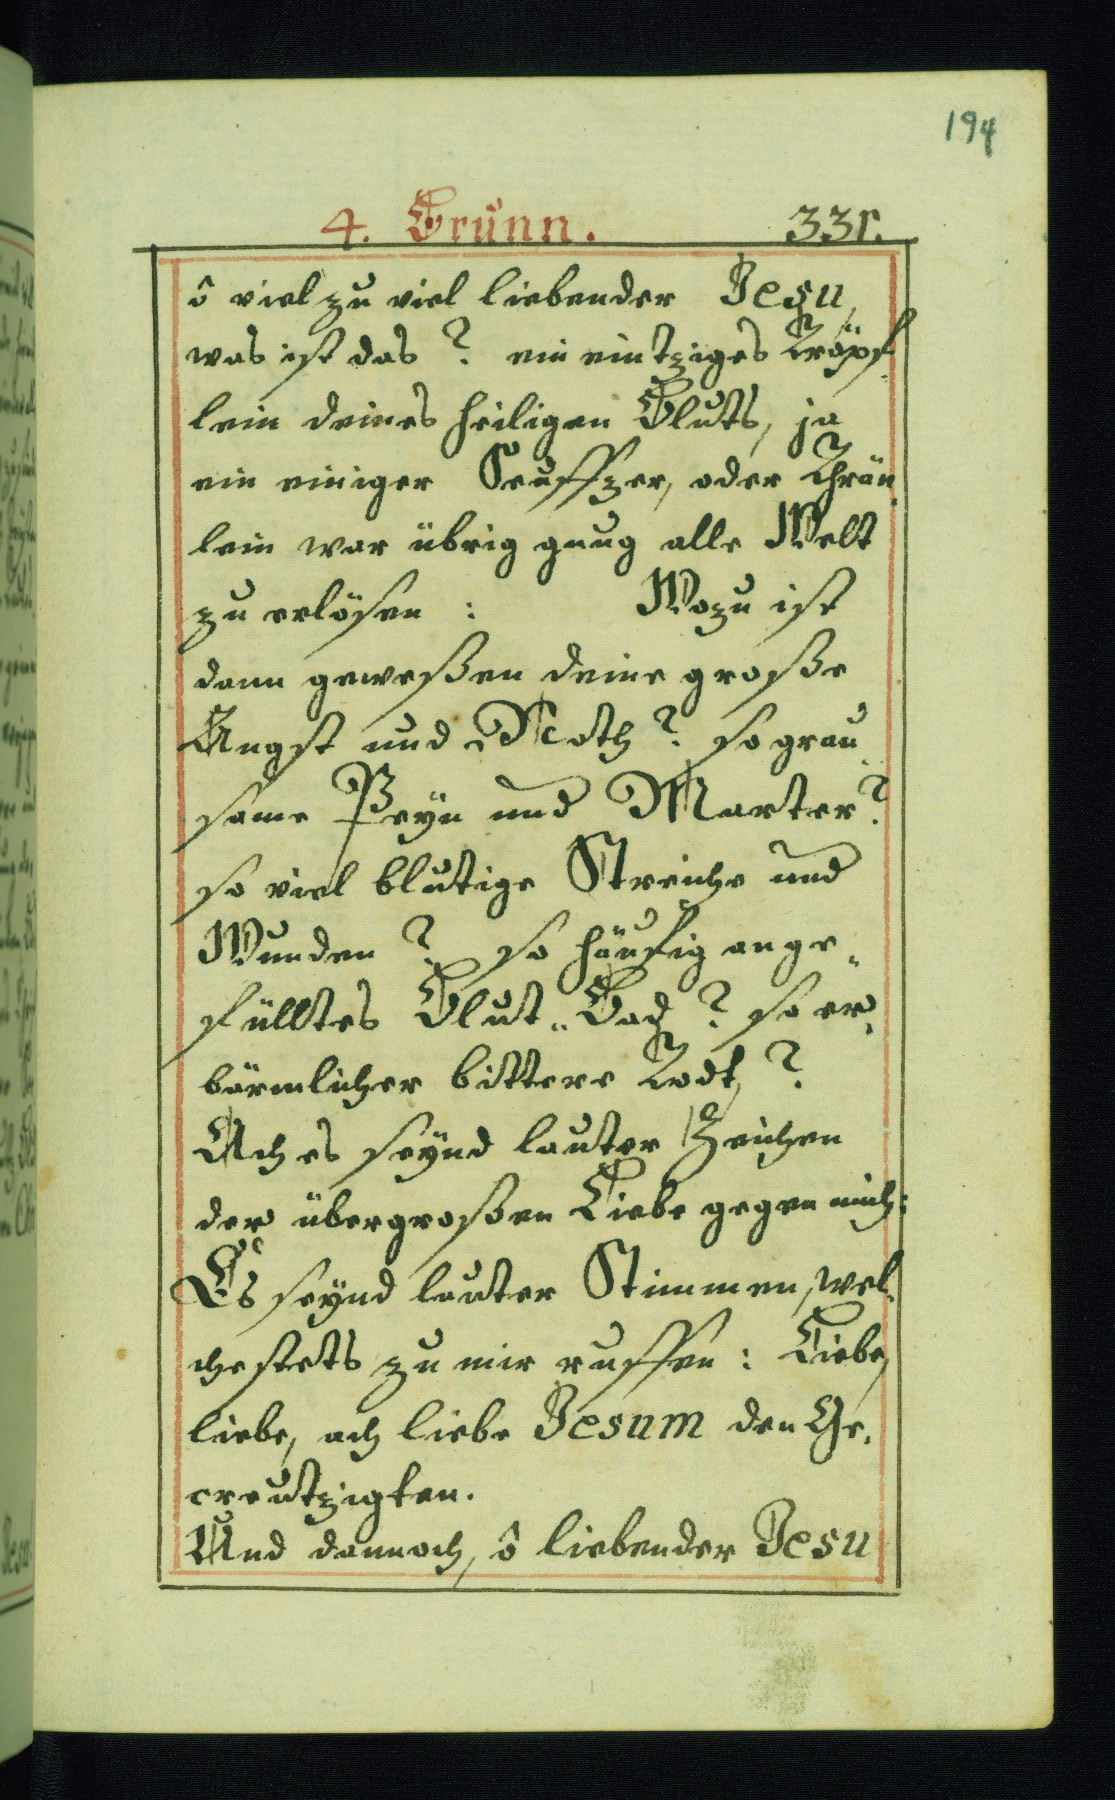 194
4. Brunn. 331.
ô viel zu viel liebender Jesu,
was ist das? ein eintziges Tröpf-
lein deines heiligen Bluts, ja
ein einiger Seuffzer, oder Thrän-
lein war übrig gnug alle Welt
zu erlösen: Wozu ist
dann geweßen deine große
Angst und Noth? so grau-
same Peyn und Marter?
so viel blutige Streiche und
Wunden? so häufig ange-
fülltes Blut-Bad? so er-
bärmlicher bittere Todt,?
Ach es seynd lauter Zeichen
der übergroßen Liebe gegen mich:
Es seynd lauter Stimmen, wel-
che stets zu mir ruffen: Liebe,
liebe, ach liebe Jesum den Ge-
creutzigten.
Und dannoch, ô liebender Jesu